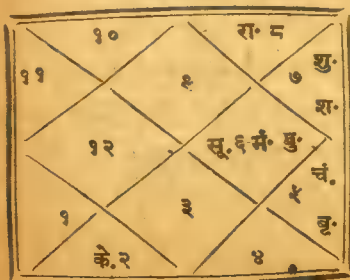 १० रा. ८
११ ९ ७ शु.
श.
१२ सू. ६ मं. बु.
चं.
१ ३ ५
बृ.
के. २ ४